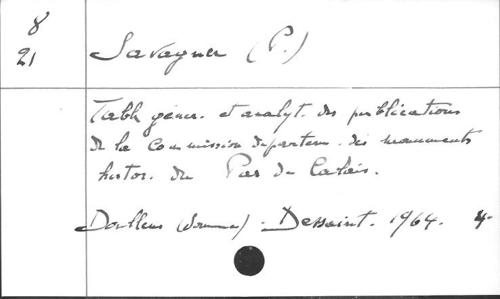 8
21
Savagner (P.)
Table génér. et analyt. des publications
de la Commission départem. des monuments
histor. du Pas de Calais.
Doullens (Somme) - Dessaint. 1964. 4°